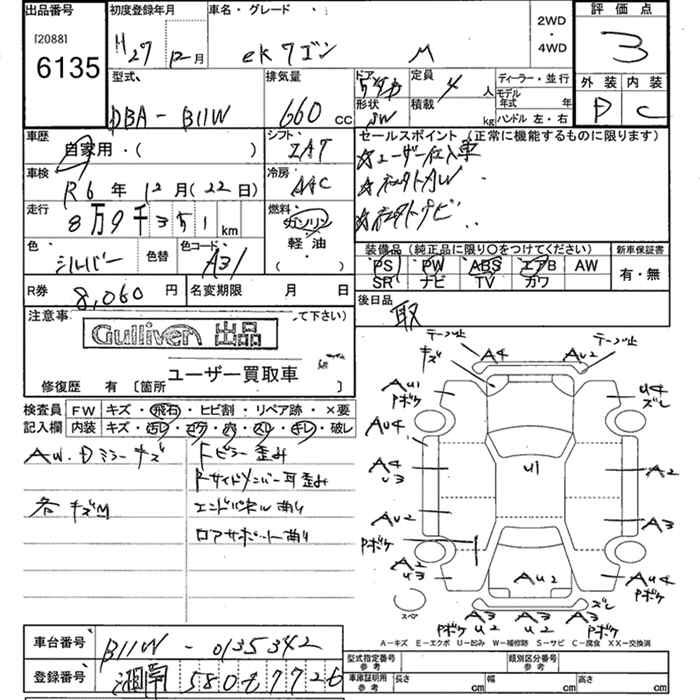 出品番号 初度登録年月 車名・グレード 2WD ・ 4WD 評価点
[2088]
6135 H27 12月 ekワゴン M 3
型式 排気量 ドア 定員 4人 ディーラー・並行 外装 内装
DBA-B11W 660cc 形状 積載 kg モデル年式 年 D C
ハンドル 左・右
車歴 シフト セールスポイント (正常に機能するものに限ります)
自家用・( ) IAT ☆ユーザー仕入車
車検 R6年12月(22日) 冷房 AAC ☆社外AW
走行 8万9千351km 燃料 ガソリン ☆社外ナビ
軽・油
( )
色 シルバー 色替 色コード A31 装備品(純正品に限り○をつけてください) 新車保証書
PS PW ABS エアB AW 有・無
SR ナビ TV カワ
R券 8,060円 名変期限 月 日 後日品
取
注意事 て下さい)
Gulliver 出品
ユーザー買取車
修復歴 有 〔箇所
検査員 FW キズ・飛石・ヒビ割・リペア跡・×要
記入欄 内装 キズ・汚レ・コゲ・穴・スレ・キレ・破レ
AW.Dミラーキズ Fピラー歪み
FサイドメンバーF歪み
各キズM エンドパネル曲り
ロアサポート曲り
テープ止 テープ止
キズ A4 AU2
AU1 Pボケ U4 ズレ
AU4
A4 U3 U1 A2
AU2 A3
Pボケ
A2 U3 AU2 AU4 Pボケ
スペア A3 A3 A3 ズレ
Pボケ U2 U2 Pボケ
A-キズ E-エクボ U-凹み W-補修跡 S-サビ C-腐食 XX-交換済
車台番号 B11W-0135342
型式指定番号 参考 類別区分番号 参考
登録番号 湘南 580 7726
車庫証明用 参考 長さ cm 幅 cm 高さ cm